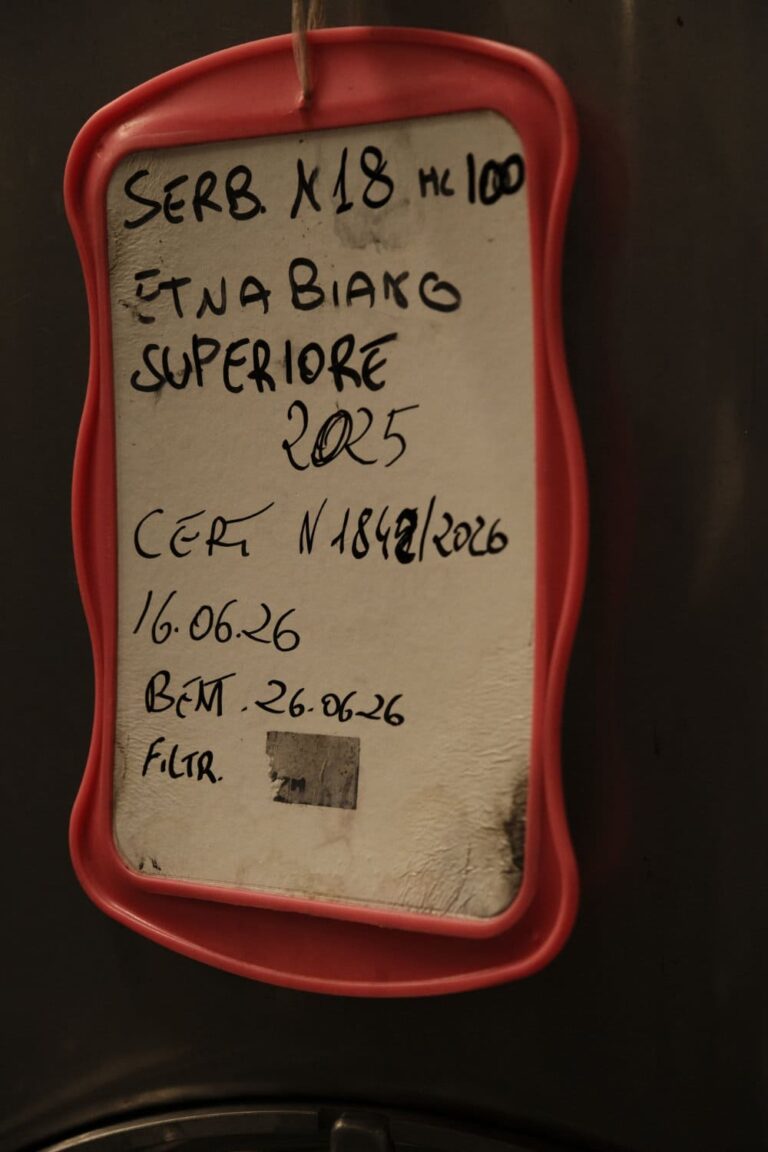 SERB. N18 HL 100
ETNA BIANCO
SUPERIORE
2025
CERT N 1842/2026
16.06.26
BENT. 26.06.26
FILTR.